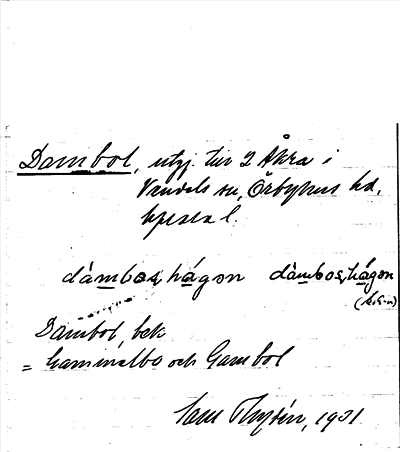 Dambol, utg. till 2 Åkra i
Vendels sn, Örbyhus hd,
Upsala l.
dàmbos,hágən dàmbos,hágən
Dambol, bek
= Gammalbo och Gambol
Sam Thysén, 1931